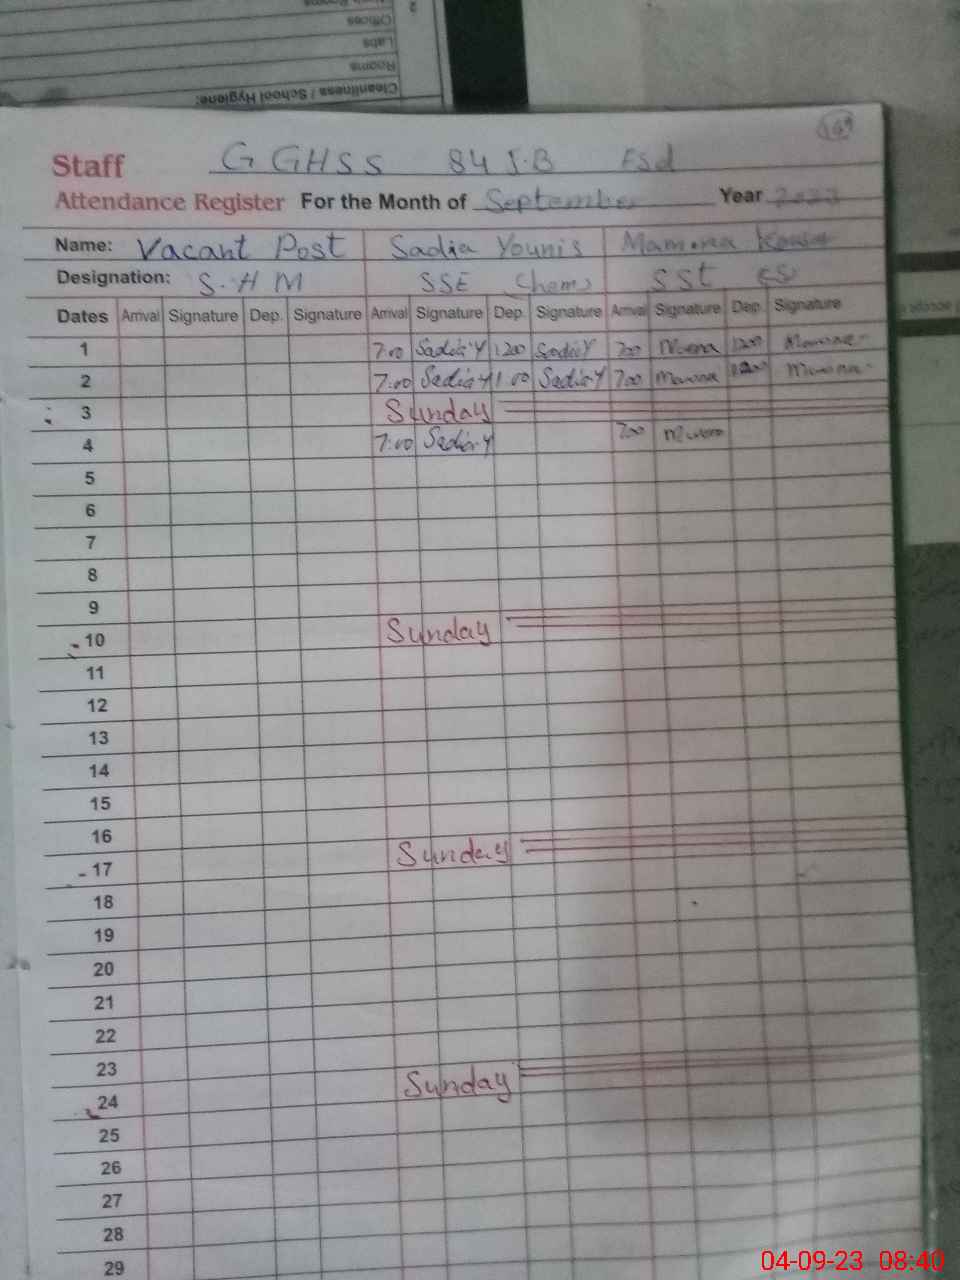 2
Offices
Labs
Rooms
Cleanliness / School Hygiene:
169
Staff G GHSS 84 J.B Fsd
Attendance Register For the Month of September Year 2023
Name: Vacant Post Sadia Younis Mamona
Designation: S.H M SSE Chem SSt
Dates Arrival Signature Dep. Signature Arrival Signature Dep. Signature Arrival Signature Dep. Signature
1 7:00 Sadia Y 1200 Sadia Y 700 1200
2 7:00 Sadia Y 1:00 Sadia Y 700 Mamona
3 Sunday
4 7:00 Sadia Y 700
5
6
7
8
9
10 Sunday
11
12
13
14
15
16
17 Sunday
18
19
20
21
22
23
24 Sunday
25
26
27
28
29
04-09-23 08:40